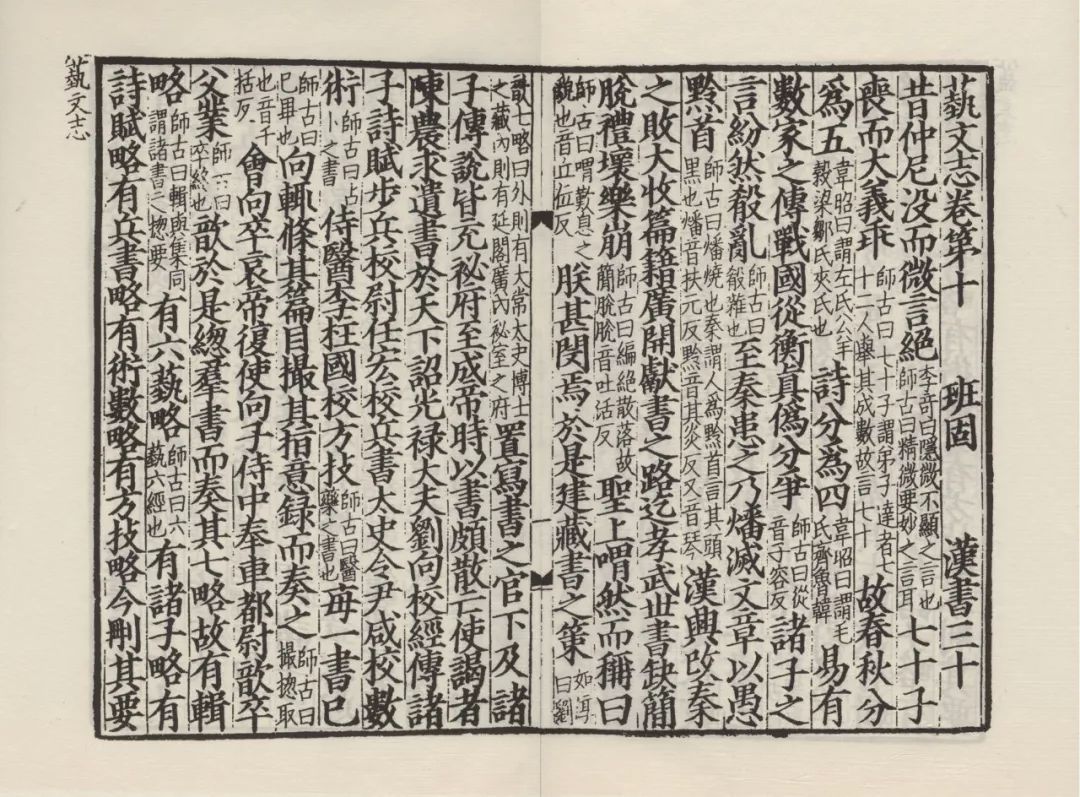 藝文志卷第十　班固　漢書三十
昔仲尼没而微言絶李竒曰隱微不顯之言也師古曰精微要妙之言耳七十子
喪而大義乖師古曰七十子謂弟子達者七十二人舉其成數故言七十故春秋分
爲五韋昭曰謂左氏公羊榖梁鄒氏夾氏也詩分爲四韋昭曰謂毛氏齊魯韓易有
數家之傳戰國從衡真僞分爭師古曰從音子容反諸子之
言紛然殽亂師古曰殽雜也至秦患之乃燔滅文章以愚
黔首師古曰燔燒也秦謂人爲黔首言其頭黑也燔音扶元反黔音其炎反又音琴漢興改秦
之敗大收篇籍廣開獻書之路迄孝武世書缺簡
脫禮壞樂崩師古曰編絶散落故簡脫脫音吐活反聖上喟然而稱曰
師古曰喟歎息之貌也音丘位反朕甚閔焉於是建藏書之策如淳曰劉
歆七略曰外則有太常太史博士之藏内則有延閣廣内秘室之府置寫書之官下及諸
子傳說皆充祕府至成帝時以書頗散亡使謁者
陳農求遺書於天下詔光禄大夫劉向校經傳諸
子詩賦步兵校尉任宏校兵書太史令尹咸校數
術師古曰占卜之書侍醫李柱國校方技師古曰醫藥之書也每一書已
師古曰已畢也向輒條其篇目撮其指意録而奏之師古曰撮揔取
也音千括反會向卒哀帝復使向子侍中奉車都尉歆卒
父業師古曰卒終也歆於是緫羣書而奏其七略故有輯
略師古曰輯與集同謂諸書之揔要有六藝略師古曰六藝六經也有諸子略有
詩賦略有兵書略有術數略有方技略今刪其要
藝文志